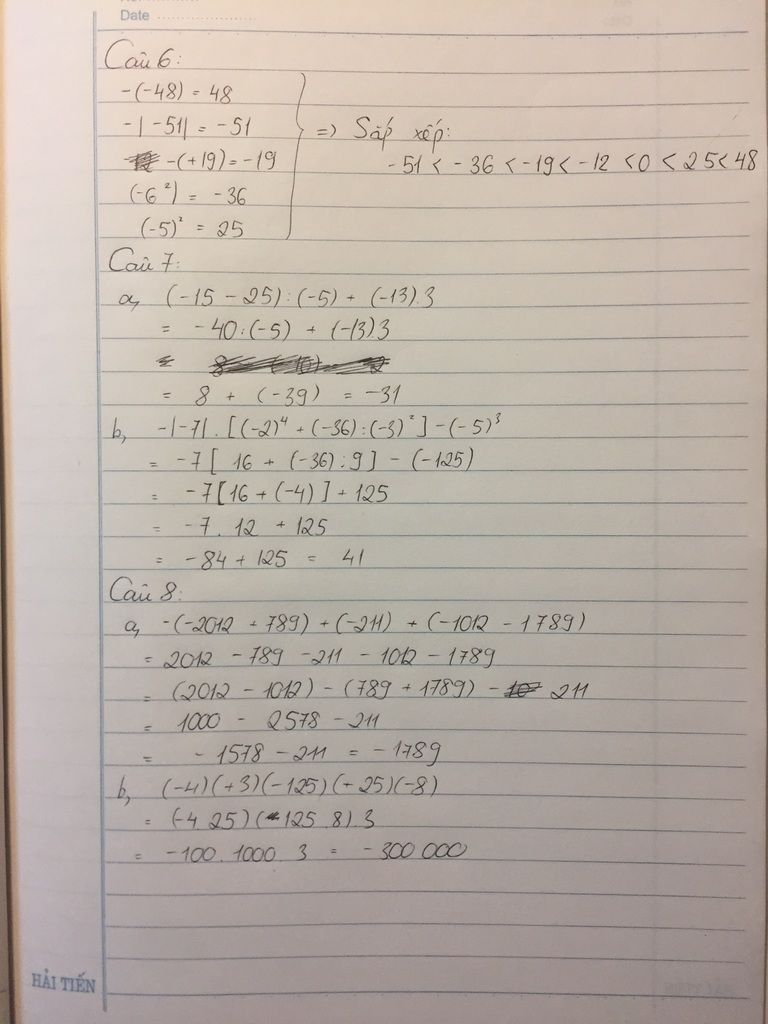 Date
Câu 6:
-(-48) = 48
-|-51| = -51 => Sắp xếp:
-(+19) = -19 -51 < -36 < -19 < -12 < 0 < 25 < 48
(-6²) = -36
(-5)² = 25
Câu 7:
a, (-15 - 25) : (-5) + (-13).3
= -40 : (-5) + (-13)3
= 8 + (-39) = -31
b, -|-7| . [(-2)⁴ + (-36) : (-3)²] - (-5)³
= -7 [ 16 + (-36) : 9 ] - (-125)
= -7 [16 + (-4) ] + 125
= -7 . 12 + 125
= -84 + 125 = 41
Câu 8:
a, -(-2012 + 789) + (-211) + (-1012 - 1789)
= 2012 - 789 - 211 - 1012 - 1789
= (2012 - 1012) - (789 + 1789) - 211
= 1000 - 2578 - 211
= - 1578 - 211 = -1789
b, (-4)(+3)(-125)(+25)(-8)
= (-4 25) (125 8) 3
= -100 . 1000 3 = -300 000
HẢI TIẾN